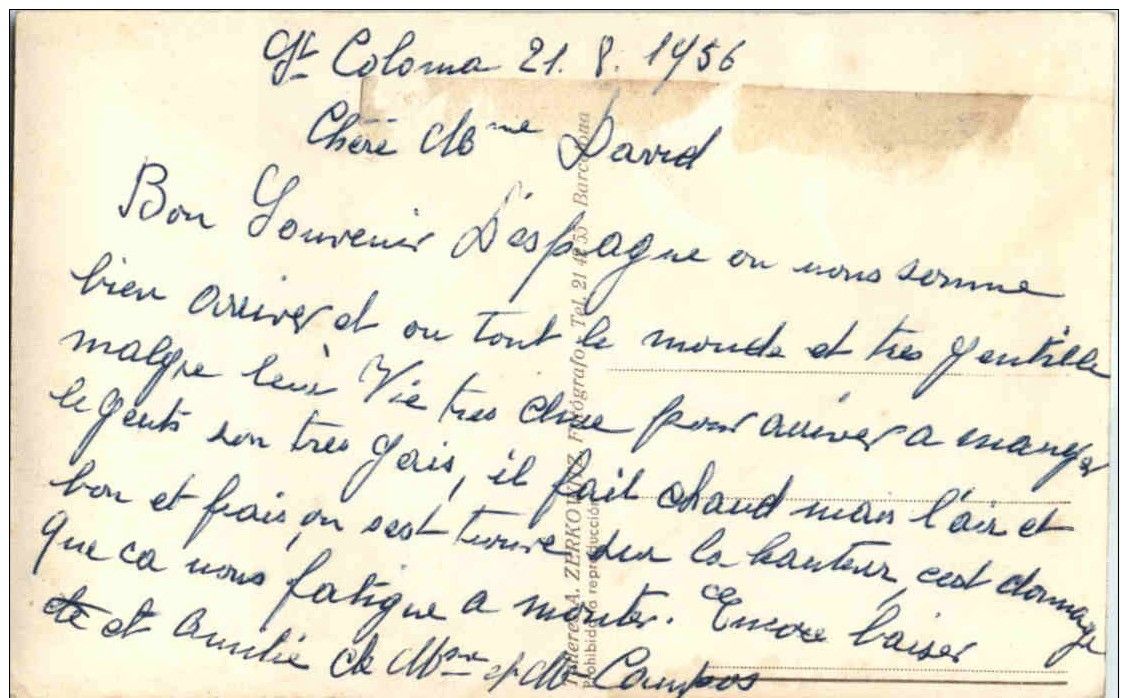 St Coloma 21. 8. 1956
Chère Mme David
Bon Souvenir D'éspagne ou nous somme
bien arriver et ou tout le monde et tres gentille
malgre leur Vie tres chere pour arriver a manger
le gents son tres gais, il fait chaud mais l'air et
bon et frais, on sest trouve sur la hauteur, cest domage
que ca nous fatigue a monter. Encore baiser
et Amitié de Mme et Mr Campos
Talleres A. ZERKOWITZ Fotógrafo. Tel. 21 47 55 Barcelona
Prohibida la reproducción